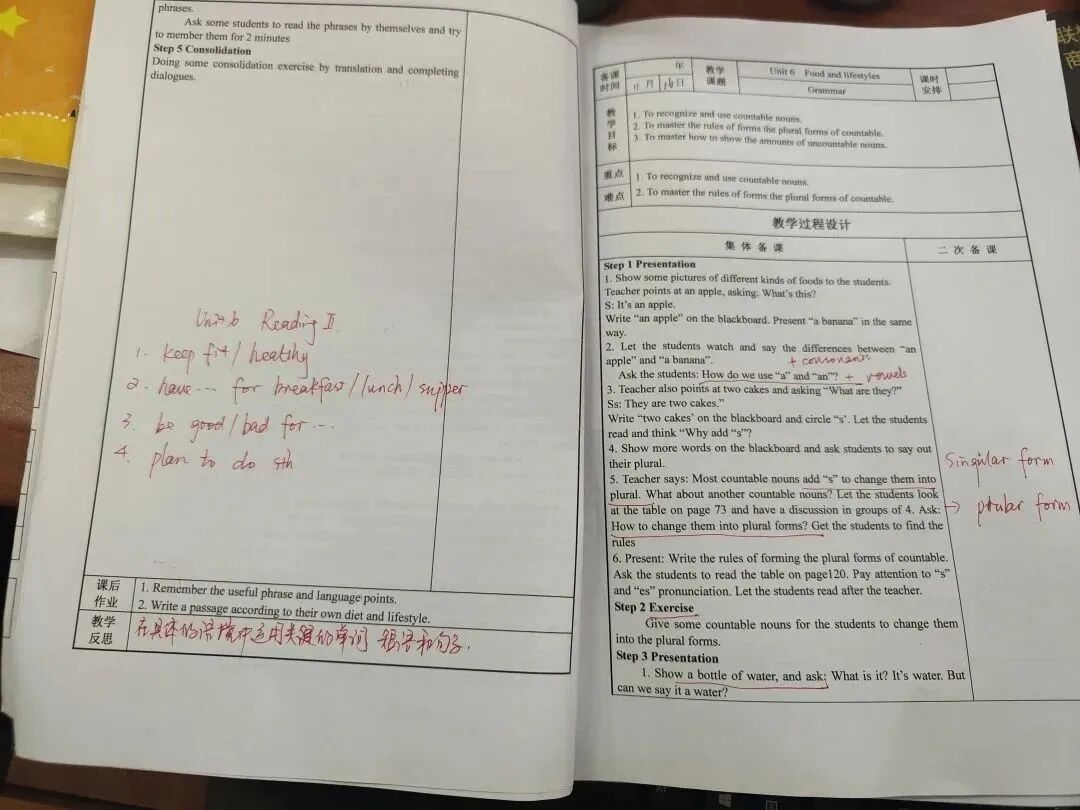 phrases.
Ask some students to read the phrases by themselves and try
to member them for 2 minutes
Step 5 Consolidation
Doing some consolidation exercise by translation and completing
dialogues.
Unit 6 Reading II
1. keep fit / healthy
2. have ... for breakfast / lunch / supper
3. be good / bad for ...
4. plan to do sth
课后
作业
1. Remember the useful phrase and language points.
2. Write a passage according to their own diet and lifestyle.
教学
反思
在具体的语境中运用关键的单词 短语和句子.
备课
时间
年
11月 日
教学
课题
Unit 6 Food and lifestyles
Grammar
课时
安排
教学目标
1. To recognize and use countable nouns.
2. To master the rules of forms the plural forms of countable.
3. To master how to show the amounts of uncountable nouns.
重点
难点
1. To recognize and use countable nouns.
2. To master the rules of forms the plural forms of countable.
教学过程设计
集体备课
二次备课
Step 1 Presentation
1. Show some pictures of different kinds of foods to the students.
Teacher points at an apple, asking: What's this?
S: It's an apple.
Write "an apple" on the blackboard. Present "a banana" in the same
way.
2. Let the students watch and say the differences between "an
apple" and "a banana".
+ consonants
Ask the students: How do we use "a" and "an"? + vowels
3. Teacher also points at two cakes and asking "What are they?"
Ss: They are two cakes."
Write "two cakes' on the blackboard and circle "s'. Let the students
read and think "Why add "s"?
4. Show more words on the blackboard and ask students to say out
their plural.
5. Teacher says: Most countable nouns add "s" to change them into
plural. What about another countable nouns? Let the students look
at the table on page 73 and have a discussion in groups of 4. Ask:
How to change them into plural forms? Get the students to find the
rules
6. Present: Write the rules of forming the plural forms of countable.
Ask the students to read the table on page120. Pay attention to "s"
and "es" pronunciation. Let the students read after the teacher.
Step 2 Exercise
Give some countable nouns for the students to change them
into the plural forms.
Step 3 Presentation
1. Show a bottle of water, and ask: What is it? It's water. But
can we say it a water?
Singular form
→ plular form